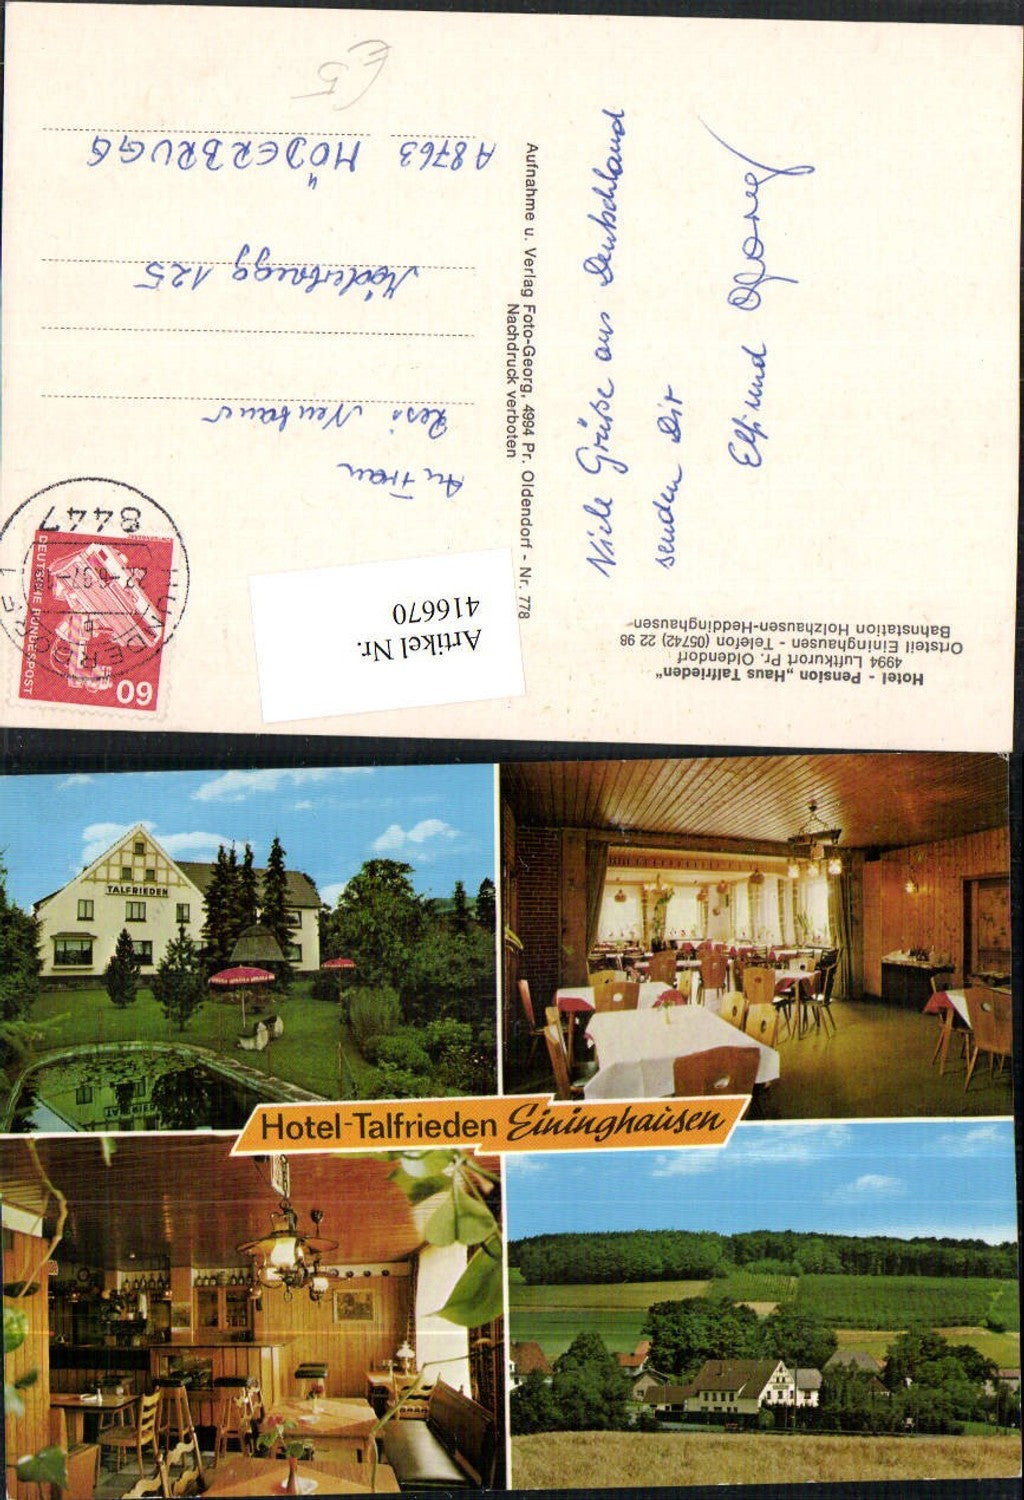 Hotel - Pension „Haus Talfrieden“
4994 Luftkurort Pr. Oldendorf
Ortsteil Eininghausen - Telefon (05742) 22 98
Bahnstation Holzhausen-Heddinghausen
Viele Grüße aus Deutschland
senden Dir
Elfi und Georg
Aufnahme u. Verlag Foto-Georg, 4994 Pr. Oldendorf - Nr. 778
Nachdruck verboten
Artikel Nr.
416670
60
DEUTSCHE BUNDESPOST
8447
An Frau
Resi Neubauer
Möderbrugg 125
A 8763 MÖDERBRUGG
€5
TALFRIEDEN
Hotel-Talfrieden Eininghausen